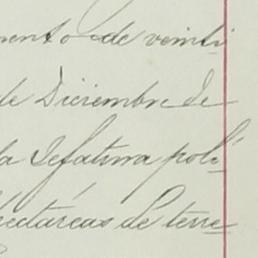 mento de veinti
de Diciembre de
la Jefatura polí
Hectáreas de terre